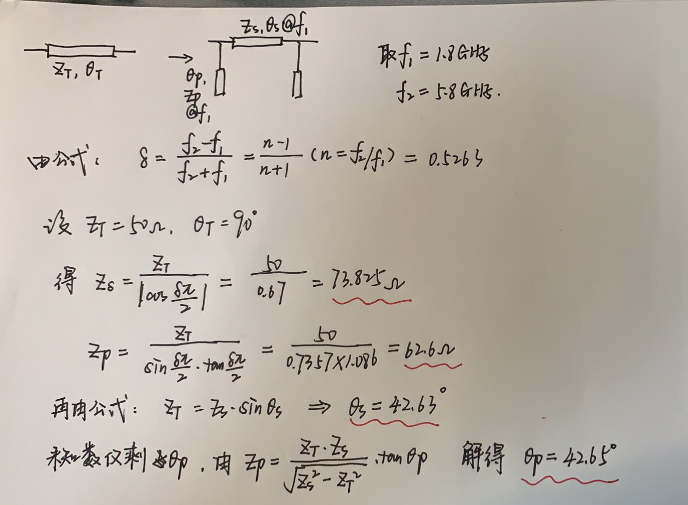 Z_T, θ_T
Z_s, θ_s @f_1
θ_p,
Z_p
@f_1
取 f_1 = 1.8GHz
f_2 = 5.8GHz.
由公式: δ = (f_2-f_1)/(f_2+f_1) = (n-1)/(n+1) (n = f_2/f_1) = 0.5263
设 Z_T = 50Ω, θ_T = 90°
得 Z_s = Z_T/|cos δπ/2| = 50/0.67 = 73.825Ω
Z_p = Z_T/(sin δπ/2 · tan δπ/2) = 50/(0.7357×1.086) = 62.6Ω
再由公式: Z_T = Z_s · sinθ_s ⇒ θ_s = 42.63°
未知数仅剩 θ_p, 由 Z_p = (Z_T · Z_s)/√(Z_s² - Z_T²) · tanθ_p 解得 θ_p = 42.65°